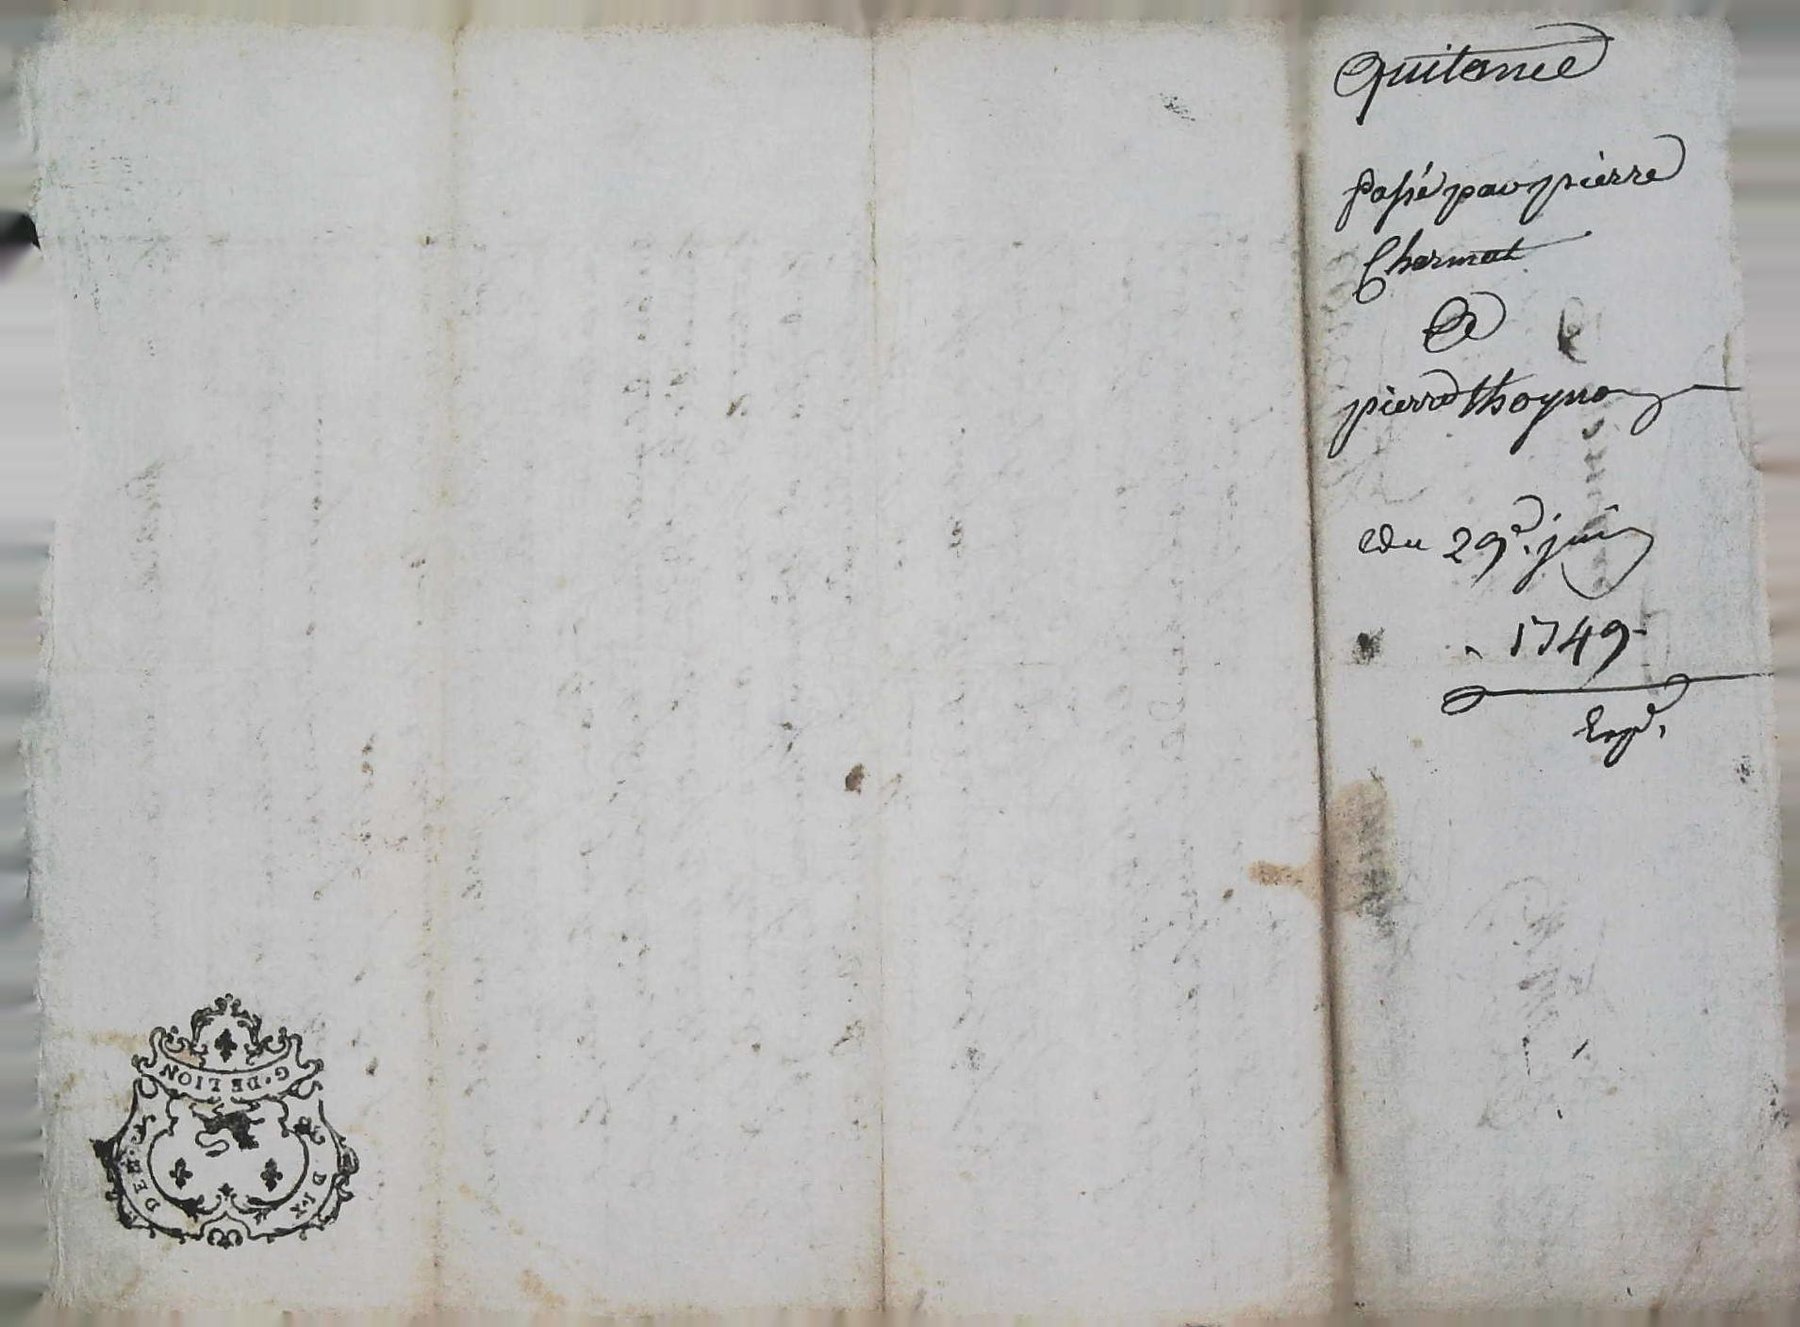 Quitance
Passé par pierre
Chermat
&
pierre thoyno
du 29e. juin
1749
Exp.
G. DE LION
DEN. DIX